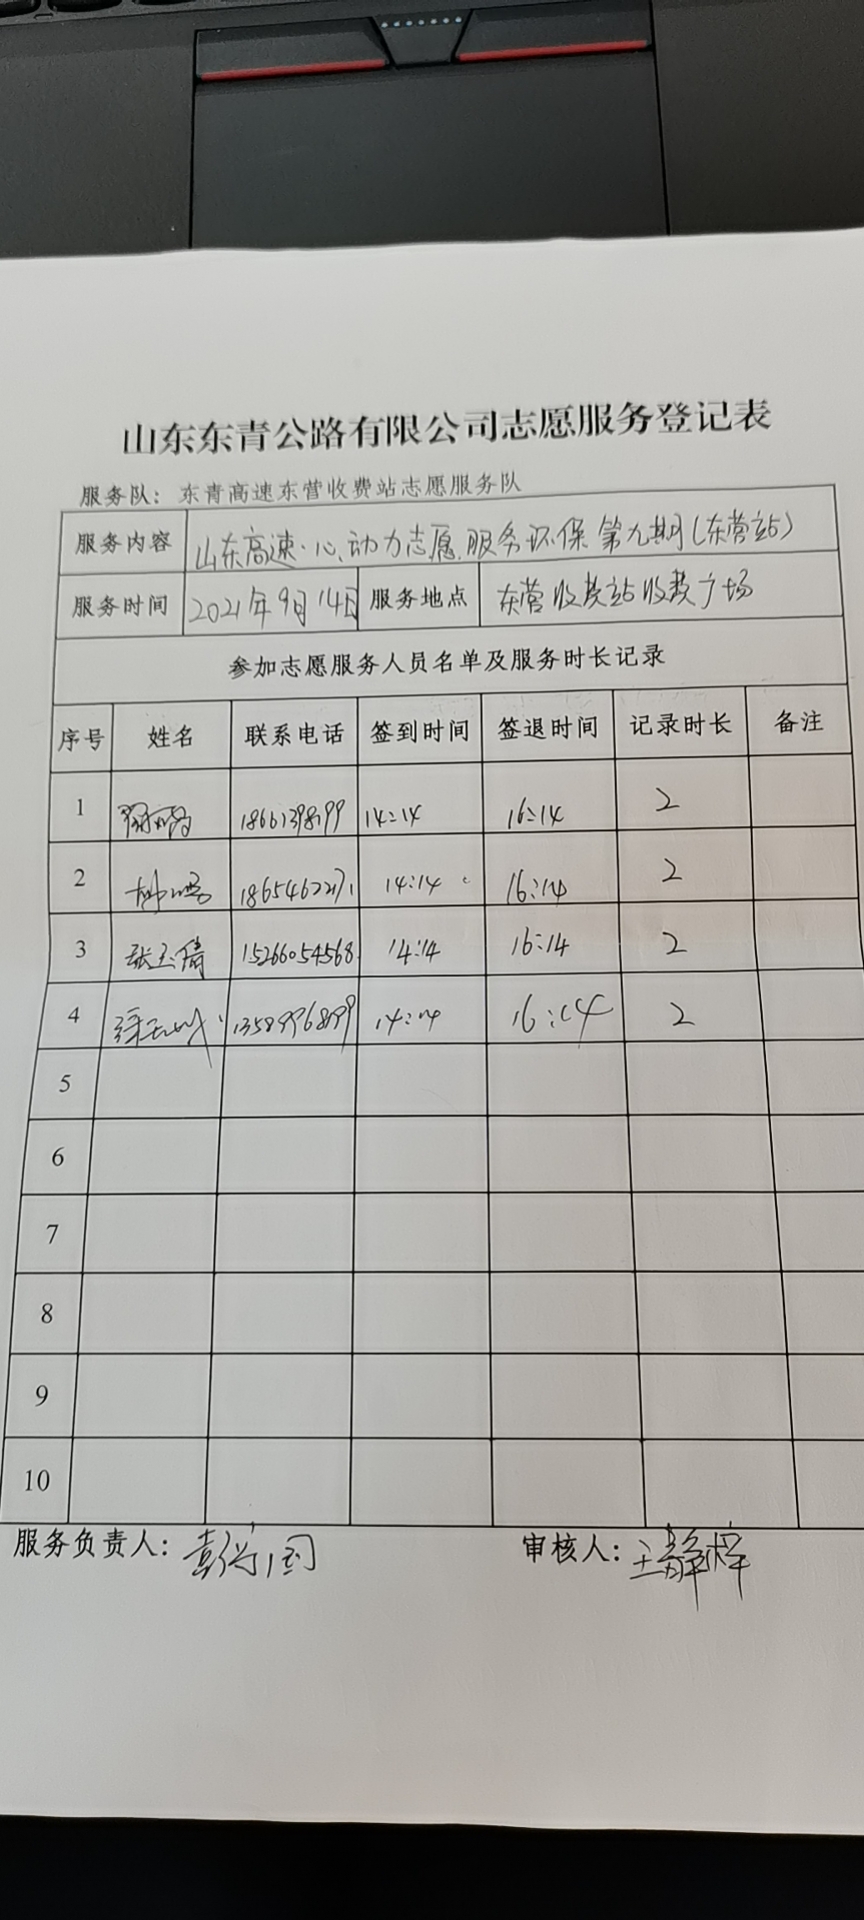 山东东青公路有限公司志愿服务登记表
服务队：东青高速东营收费站志愿服务队
服务内容 山东高速·心动力志愿服务环保第九期（东营站）
服务时间 2021年9月14日 服务地点 东营收费站收费广场
参加志愿服务人员名单及服务时长记录
序号 姓名 联系电话 签到时间 签退时间 记录时长 备注
1 14:14 16:14 2
2 14:14 16:14 2
3 张玉倩 15266054568 14:14 16:14 2
4 14:14 16:14 2
5
6
7
8
9
10
服务负责人： 审核人：王静梓